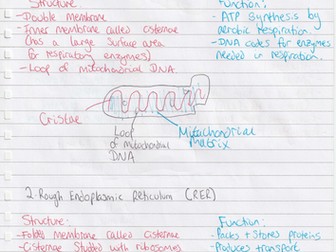 Structure:
- Double Membrane
- Inner membrane called cisternae
(has a large surface area
for respiratory enzymes)
- Loop of mitochondrial DNA.
Function:
- ATP Synthesis by
aerobic respiration
- DNA codes for enzymes
needed in respiration.
Cristae
Loop
of mitochondrial
DNA
Mitochondrial
Matrix
2-Rough Endoplasmic Reticulum (RER)
Structure:
- Folded membrane called cisternae
- Cisternae Studded with ribosomes
Function:
- Packs + Stores proteins
- Produces transport